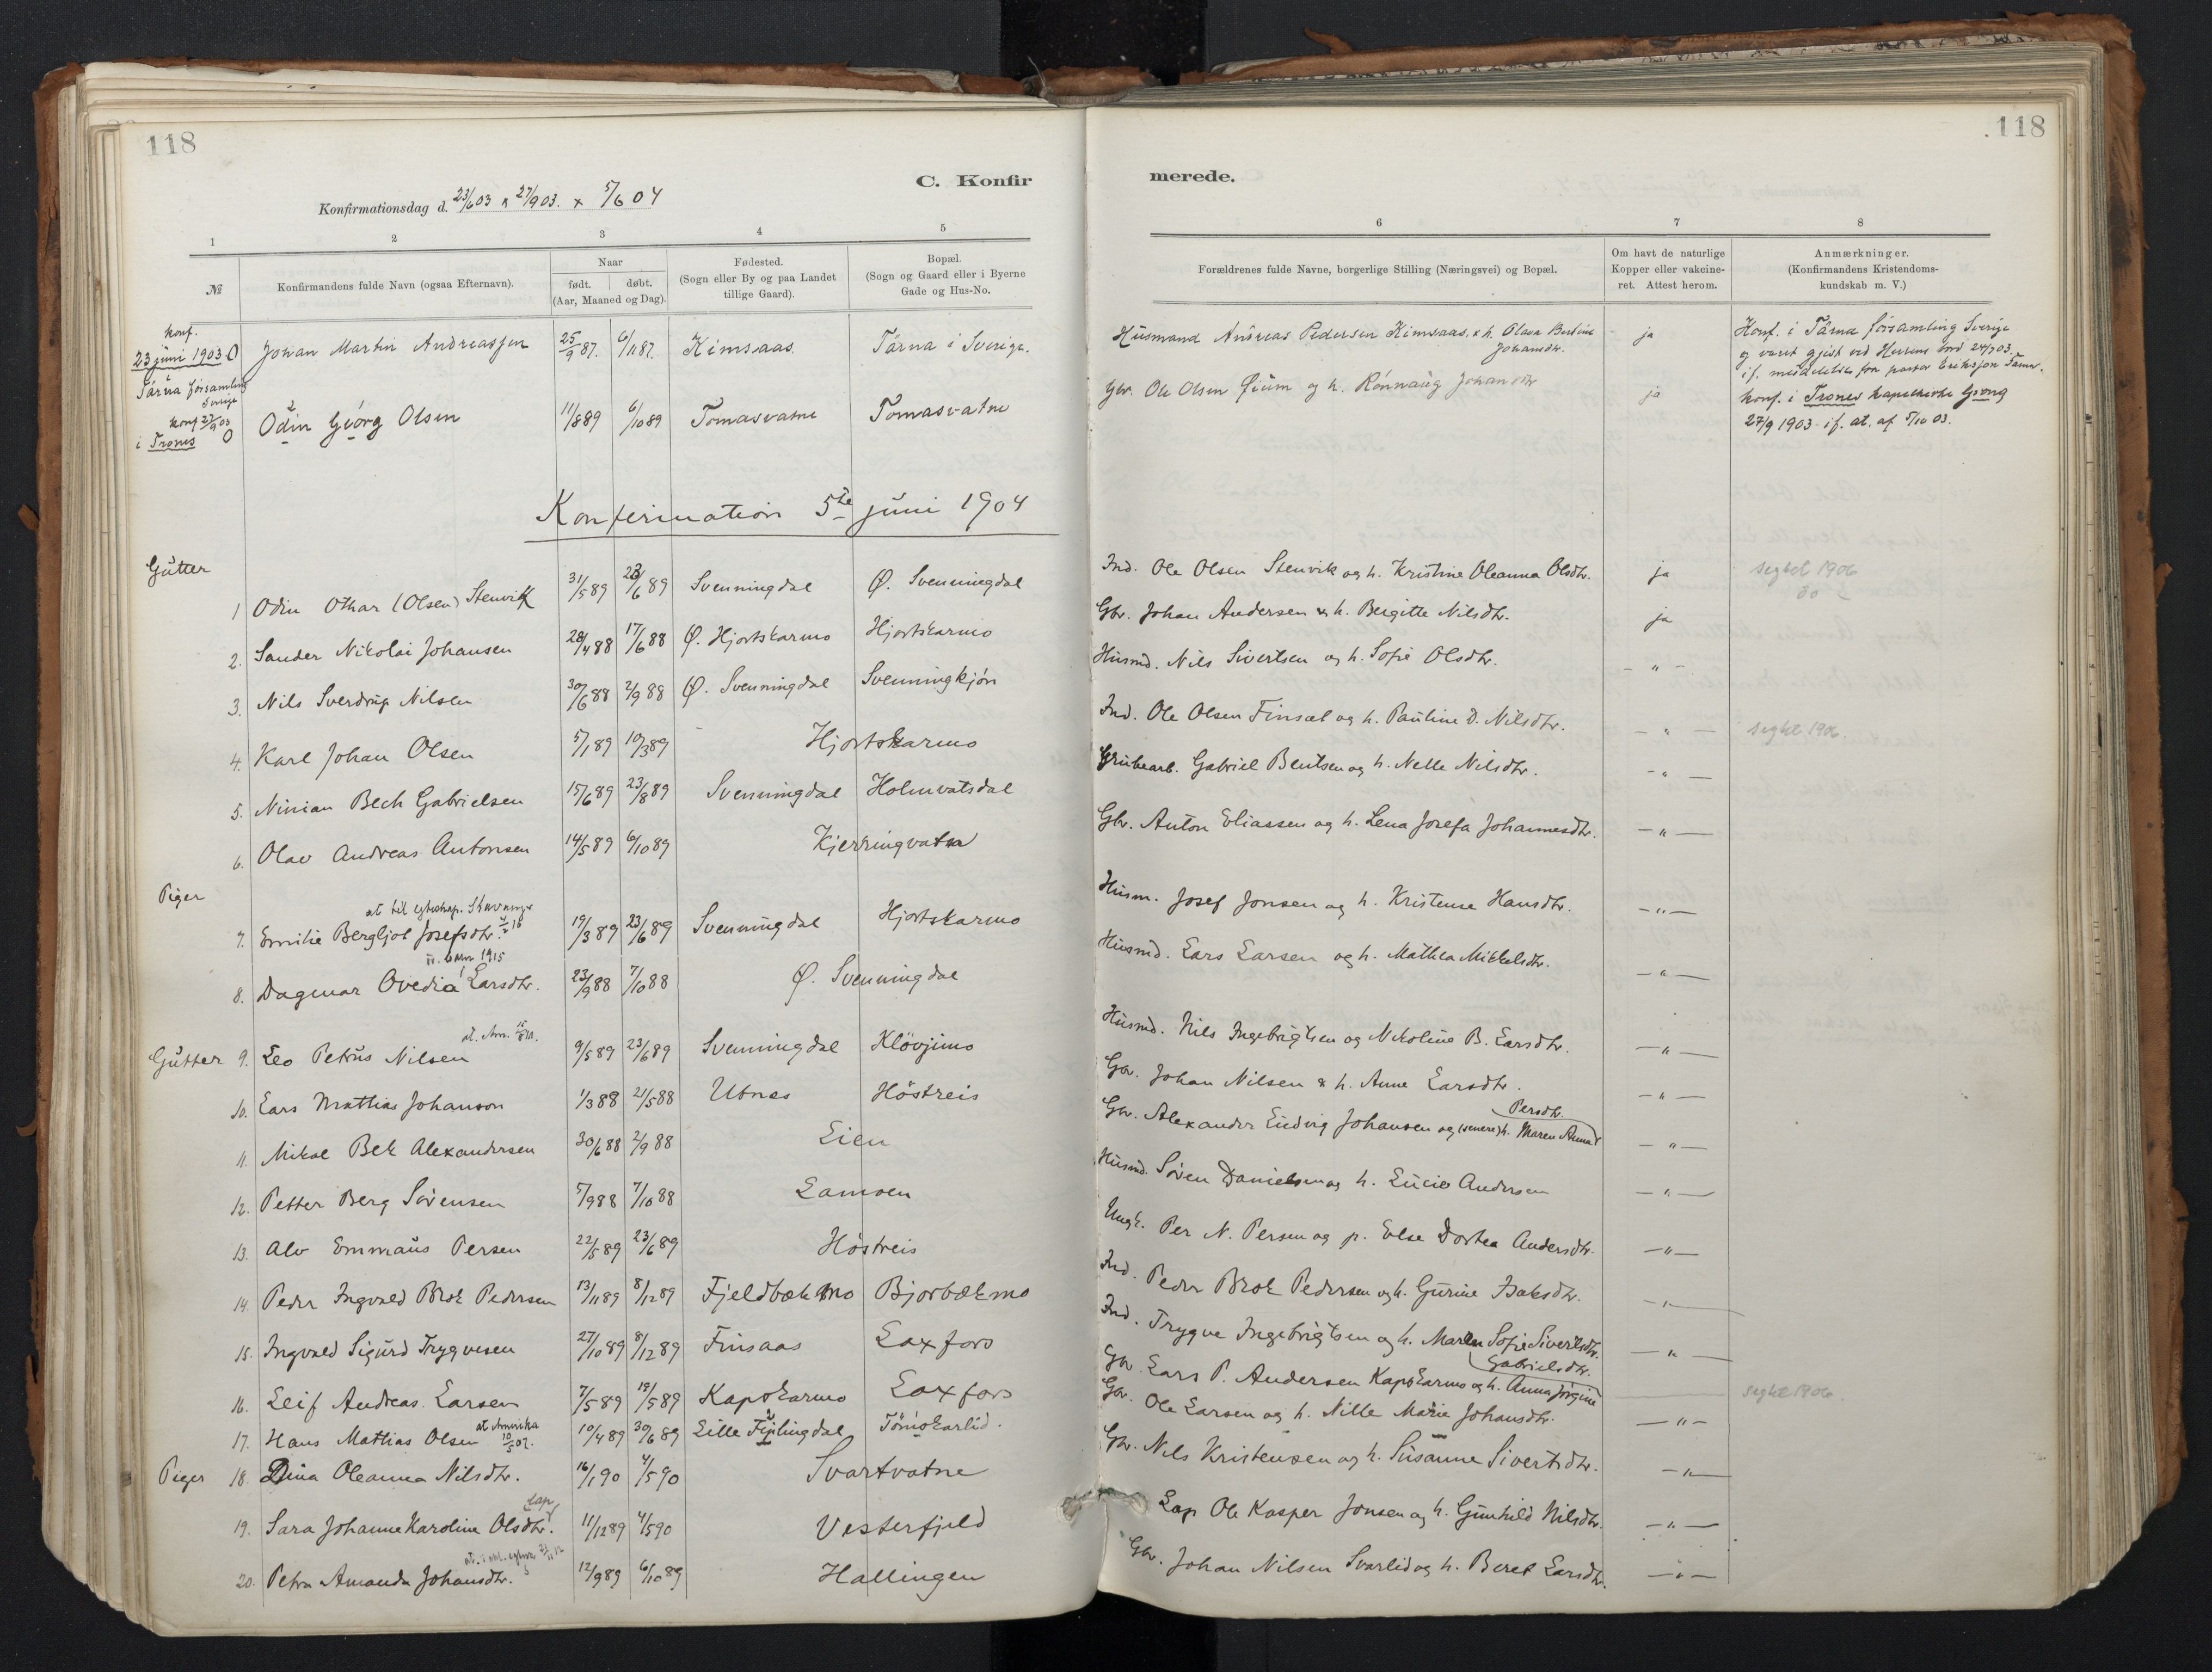 118
C. Konfir
Konfirmationsdag d. 23/6 03 & 27/9 03. x 5/6 04
1 2 3 4 5
№ Konfirmandens fulde Navn (ogsaa Efternavn). Naar født. døbt. (Aar, Maaned og Dag). Fødested. (Sogn eller By og paa Landet tillige Gaard). Bopæl. (Sogn og Gaard eller i Byerne Gade og Hus-No.
konf. 23 juni 1903 0 Johan Martin Andreassen 25/9 87. 6/11 87. Kimsaas. Tärna i Sverige.
Tärna församling Sverige
konf 27/9 03 i Trones 0 Odin Georg Olsen 11/8 89 6/10 89 Tomasvatne Tomasvatne
Konfirmation 5te juni 1904
Gutter
1 Odin Othar (Olsen) Stenvik 31/5 89 23/6 89 Svenningdal Ø. Svenningdal
2. Sander Nikolai Johansen 28/4 88 17/6 88 Ø. Hjortskarmo Hjortskarmo
3. Nils Sverdrup Nilsen 30/6 88 2/9 88 Ø. Svenningdal Svenningkjön
4. Karl Johan Olsen 5/1 89 10/3 89 Hjortskarmo
5. Ninian Bech Gabrielsen 15/6 89 23/8 89 Svenningdal Holmvatsdal
6. Olav Andreas Antonsen 14/5 89 6/10 89 Kjerringvatn
Piger
at til
7. Emilie Bergljot Josefsdtr. 19/3 89 23/6 89 Svenningdal Hjortskarmo
1915
8. Dagmar Ovedia Larsdtr. 23/9 88 7/10 88 Ø. Svenningdal
Gutter 9. Leo Petrus Nilsen 9/5 89 23/6 89 Svenningdal Klövjimo
10. Lars Mathias Johanson 1/3 88 21/5 88 Utnes Höstreis
11. Mikal Bek Alexandersen 30/6 88 2/9 88 Lien
12. Petter Berg Sörensen 5/9 88 7/10 88 Lamoen
13. Alv Emmaus Persen 22/5 89 23/6 89 Höstreis
14. Peder Ingvald Brok Pedersen 13/11 89 8/12 89 Fjeldbækmo Bjorbækmo
15. Ingvald Sigurd Trygvesen 27/10 89 8/12 89 Finsaas Laxfors
16. Leif Andreas Larsen 7/5 89 19/5 89 Kapskarmo Laxfors
at Amerika
17. Hans Mathias Olsen 10/5 07. 10/4 89 30/6 89 Lille Fiplingdal Tömskarlid.
Piger 18. Dina Oleanna Nilsdtr. 16/1 90 4/5 90 Svartvatne
19. Sara Johanne Karoline Olsdtr. Lap 11/12 89 4/5 90 Vesterfjeld
20. Petra Amanda Johansdtr. 12/9 89 6/10 89 Hallingen
118
merede.
6 7 8
Forældrenes fulde Navne, borgerlige Stilling (Næringsvei) og Bopæl. Om havt de naturlige Kopper eller vakcineret. Attest herom. Anmærkninger. (Konfirmandens Kristendomskundskab m. V.)
Husmand Andreas Pedersen Kimsaas. & h. Olava Berline Johansdtr. ja Konf. i Tärna församling Sverige
og været gjest ved Herrens bord 24/7 03.
if. meddelelse fra pastor Eriksson Tärna.
Gbr. Ole Olsen Öium og h. Rönnaug Johansdtr ja Konf. i Trones Kapelkirke Grong
27/9 1903 if. at. af 5/10 03.
Ind. Ole Olsen Stenvik og h. Kristine Oleanna Olsdtr. ja seglet 1906
Gbr. Johan Andersen & h. Bergitte Nilsdtr. ja do
Husmd. Nils Sivertsen og h. Sofie Olsdtr. - " -
Ind. Ole Olsen Finsæt og h. Pauline D. Nilsdtr. - " - seglet 1906.
Grubearb. Gabriel Bentsen og h. Nelle Nilsdtr. - " -
Gbr. Anton Eliassen og h. Lena Josefa Johannesdtr. - " -
Husm. Josef Jonsen og h. Kristense Hansdtr. - " -
Husmd. Lars Larsen og h. Mathea Mikkelsdtr. - " -
Husmd. Nils Ingebrigtsen og Nikoline B. Larsdtr. - " -
Gbr. Johan Nilsen & h. Anne Larsdtr. - " -
Gbr. Alexander Ludvig Johansen og (senere) h. Maren Anna Persdtr. - " -
Husmd. Sören Danielsen og h. Lucie Andersen - " -
Ungk. Per N. Persen og p. Else Dortea Andersdtr. - " -
Ind. Peder Brok Pedersen og h. Gurine Isaksdtr. - " -
Ind. Trygve Ingebrigtsen og h. Maren Sofie Sivertsdtr. - " -
Gbr. Lars P. Andersen Kapskarmo og h. Anna Jörgine Gabrielsdtr. seglet 1906.
Gbr. Ole Larsen og h. Nille Marie Johansdtr. - " -
Gbr. Nils Kristensen og h. Susanne Sivertsdtr. - " -
Lap Ole Kasper Jonsen og h. Gunhild Nilsdtr. - " -
Gbr. Johan Nilsen Svarlid og h. Beret Larsdtr. - " -